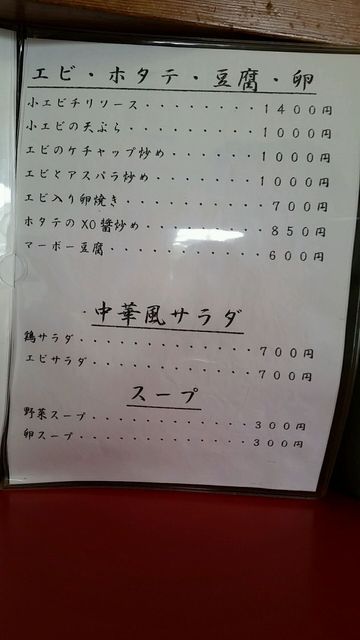 エビ・ホタテ・豆腐・卵
小エビチリソース・・・・・・・・１４００円
小エビの天ぷら・・・・・・・・・・１０００円
エビのケチャップ炒め・・・・・・・１０００円
エビとアスパラ炒め・・・・・・・・１０００円
エビ入り卵焼き・・・・・・・・・・・７００円
ホタテのXO醬炒め・・・・・・・・・８５０円
マーボー豆腐・・・・・・・・・・・・６００円
・中華風サラダ
鶏サラダ・・・・・・・・・・・・・７００円
エビサラダ・・・・・・・・・・・・７００円
スープ
野菜スープ・・・・・・・・・・・・３００円
卵スープ・・・・・・・・・・・・・３００円